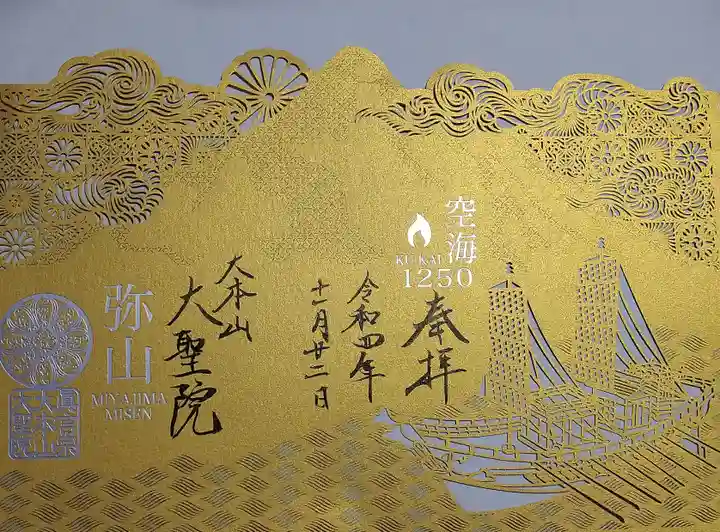 空海
KU-KAI
1250
奉拝
令和四年
十一月廿二日
大本山
大聖院
弥山
MIYAJIMA
MISEN
真言宗
大本山
大聖院